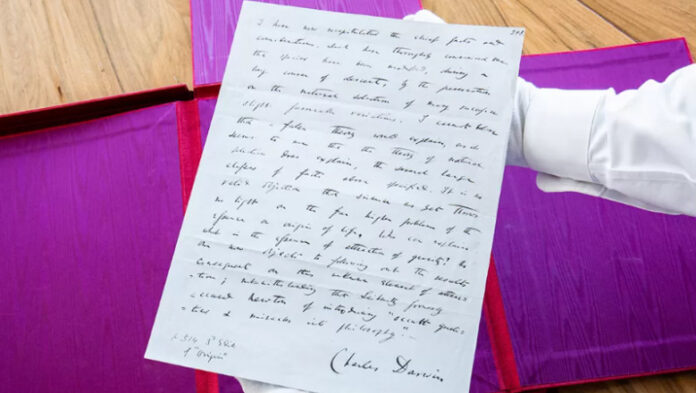 208
I have now recapitulated the chief facts and
considerations, which have thoroughly convinced me
that species have been modified, during a
long course of descent, by the preservation
or the natural selection of many successive
slight favourable variations. I cannot believe
that a false theory would explain, as it
seems to me that the theory of natural
selection does explain, the several large
classes of facts above specified. It is no
valid objection that science as yet throws
no light on the far higher problem of the
essence or origin of life. Who can explain
what is the essence of attraction of gravity? No
one now objects to following out the results
consequent on this unknown element of attrac
-tion; notwithstanding that Leibnitz formerly
accused Newton of introducing "occult quali-
-ties & miracles into philosophy".—
Charles Darwin
p 514 3d Edit
of "Origin"